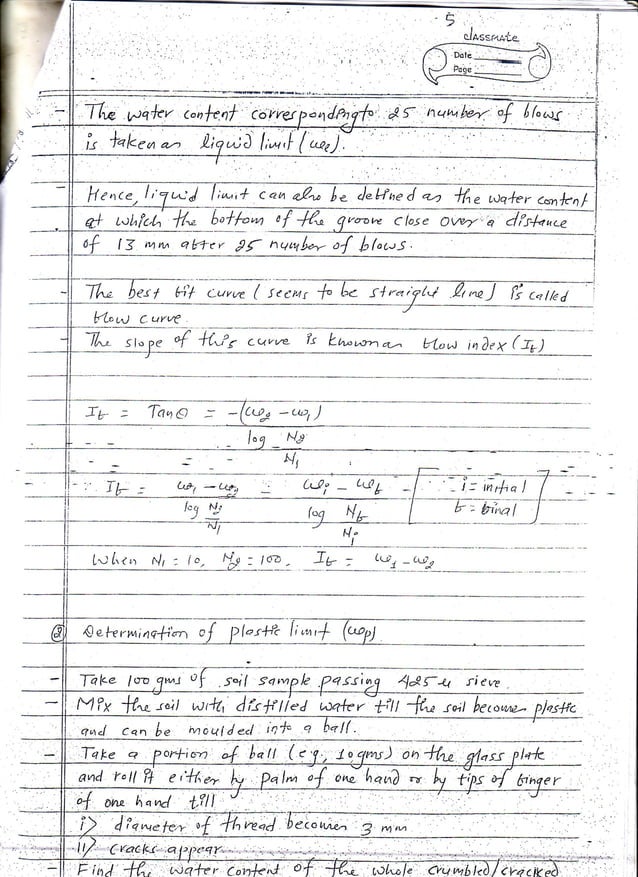 5
classmate
Date
Page
- The water content corresponding to 25 number of blows
is taken as liquid limit (ωl).
- Hence, liquid limit can also be defined as the water content
at which the bottom of the groove close over a distance
of 13 mm after 25 number of blows.
- The best fit curve (seems to be straight line) is called
flow curve.
- The slope of this curve is known as flow index (If)
If = Tanθ = -(ω2 - ω1)
log N2
N1
∴ If = ω1 - ω2 = ωi - ωf [ i = initial
log N2/N1 log Nf/Ni f = final ]
When N1 = 10, N2 = 100, If = ω1 - ω2
② Determination of plastic limit (ωp)
- Take 100 gms of soil sample passing 425 μ sieve
- Mix the soil with distilled water till the soil becomes plastic
and can be moulded into a ball.
- Take a portion of ball (e.g, 10 gms) on the glass plate
and roll it either by palm of one hand or by tips of finger
of one hand till
i) diameter of thread becomes 3 mm
ii) cracks appear
- Find the water content of the whole crumbled/cracked